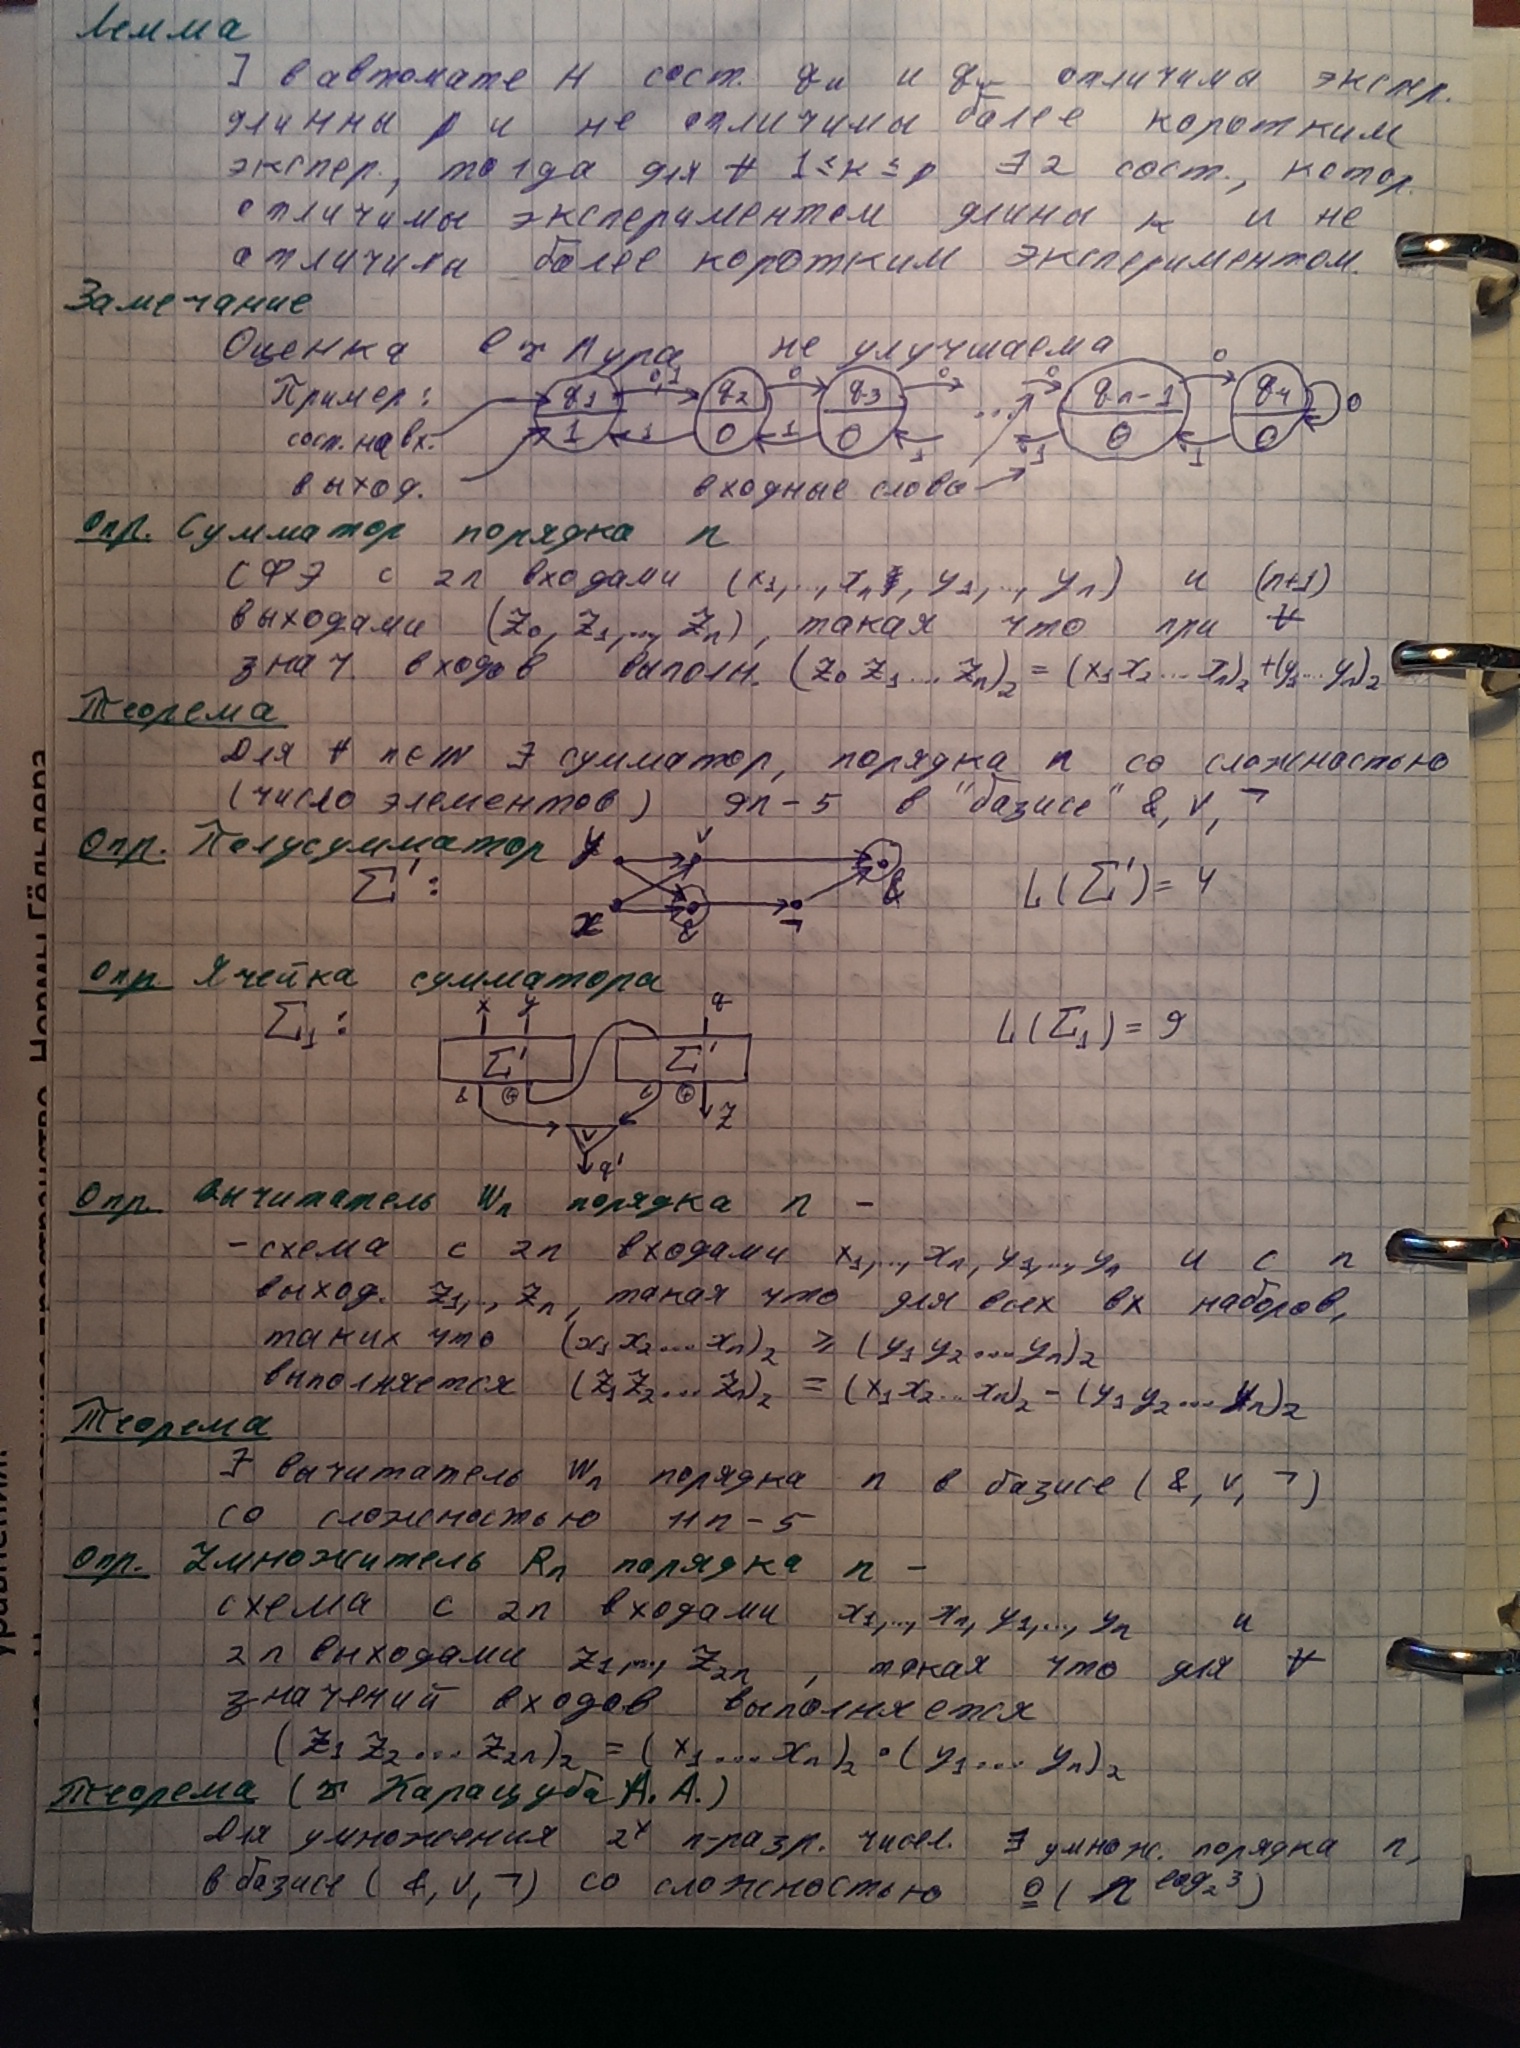 Лемма
] в автомате H сост. qu и qv отличимы экспер.
длинны p и не отличимы более коротким
экспер., тогда для ∀ 1≤k≤p ∃ 2 сост., котор.
отличимы экспериментом длины k и не
отличимы более коротким экспериментом.
Замечание
Оценка в т Мура не улучшаема
Пример:
сост. на вх.
выход.
q1 1 0,1 1 q2 0 0 1 q3 0 0 1 ... 0 1 qn-1 0 0 1 qn 0 0
входные слова
Опр. Сумматор порядка n
СФЭ с 2n входами (x1,..,xn, y1,.., yn) и (n+1)
выходами (z0, z1,.., zn), такая что при ∀
знач. входов выполн. (z0 z1...zn)2 = (x1x2...xn)2+(y1...yn)2
Теорема
Для ∀ n∈N ∃ сумматор, порядка n со сложностью
(число элементов) 9n-5 в "базисе" &, v, ¬
Опр. Полусумматор
Σ': y x v & ¬ & L(Σ')= 4
Опр. Ячейка сумматора
Σ1: x y q L(Σ1) = 9
Σ' Σ'
& ⊕ & ⊕
z
v
q'
Опр. Вычитатель Wn порядка n -
- схема с 2n входами x1,..,xn, y1,..,yn и с n
выход. z1,.., zn, такая что для всех вх наборов,
таких что (x1x2...xn)2 ≥ (y1y2...yn)2
выполняется (z1z2...zn)2 = (x1x2...xn)2 - (y1y2...yn)2
Теорема
∃ вычитатель Wn порядка n в базисе (&, v, ¬)
со сложностью 11n-5
Опр. Умножитель Rn порядка n -
схема с 2n входами x1,..,xn, y1,..,yn и
2n выходами z1,.., z2n, такая что для ∀
значений входов выполняется
(z1 z2...z2n)2 = (x1...xn)2 • (y1...yn)2
Теорема (т Карацуба А.А.)
Для умножения 2х n-разр. чисел. ∃ умнож. порядка n,
в базисе (&, v, ¬) со сложностью O(n^log2 3)